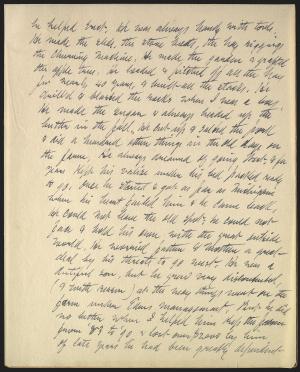 he helped most. He was always handy with tools.
He made the sleds, the stone boats, the hay rigging,
the churning machine. He made the garden & grafted
the apple trees. He loaded & pitched off all the hay
for nearly 40 years, & built all the stacks. He
used to the racks when I was a boy.
He made the & always headed up the
butter in the fall. He cut up & salted the pork
& did a hundred other things in the old days, on
the farm. He always of going West & for
years kept his valise under his bed packed ready
to go. Once he started & got as far as
when his heart failed him & he came back,
he could not leave the old spot. He could not
face & hold his own with the great outside
world. He worried father & mother a great
deal by his threats to go west. He was a
dutiful son, but he grew very discontented
(& with reason) at the way things went on the
farm under Edens management. But he did
no better when I helped him keep the farm
from to & lost over by him
of late years he had been greatly dependent